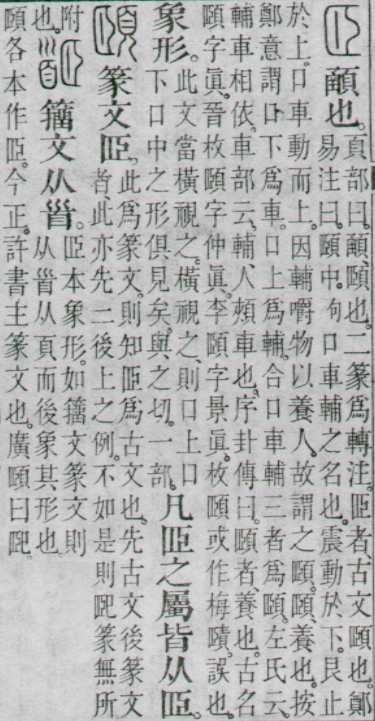 𦣞 顄也。頁部曰。顄、頤也。二篆爲轉注。𦣞者、古文頤也。鄭
易注曰。頤中。句口車輔之名也。震動於下。艮止
於上。口車動而上。因輔嚼物以養人。故謂之頤。頤、養也。按
鄭意謂口下爲車。口上爲輔。合口車輔三者爲頤。左氏云、
輔車相依。車部云、輔、人頰車也。序卦傳曰。頤者、養也。古名
頤字眞。晉枚頤字仲眞。李頤字景眞。枚頤或作梅賾。誤也。
象形。此文當橫視之。橫視之、則口上口
下口中之形俱見矣。與之切。一部。凡𦣞之屬皆从𦣞。
頤 篆文𦣞。此爲篆文。則知𦣞爲古文也。先古文後篆文
者、此亦先二後上之例。不如是則𦣝篆無所
附
也。 籒文从𩠐。𦣞本象形。如籒文篆文則
从𩠐从頁而後象其形也。
頤各本作𦣞。今正。許書主篆文也。廣頤曰𦣝。